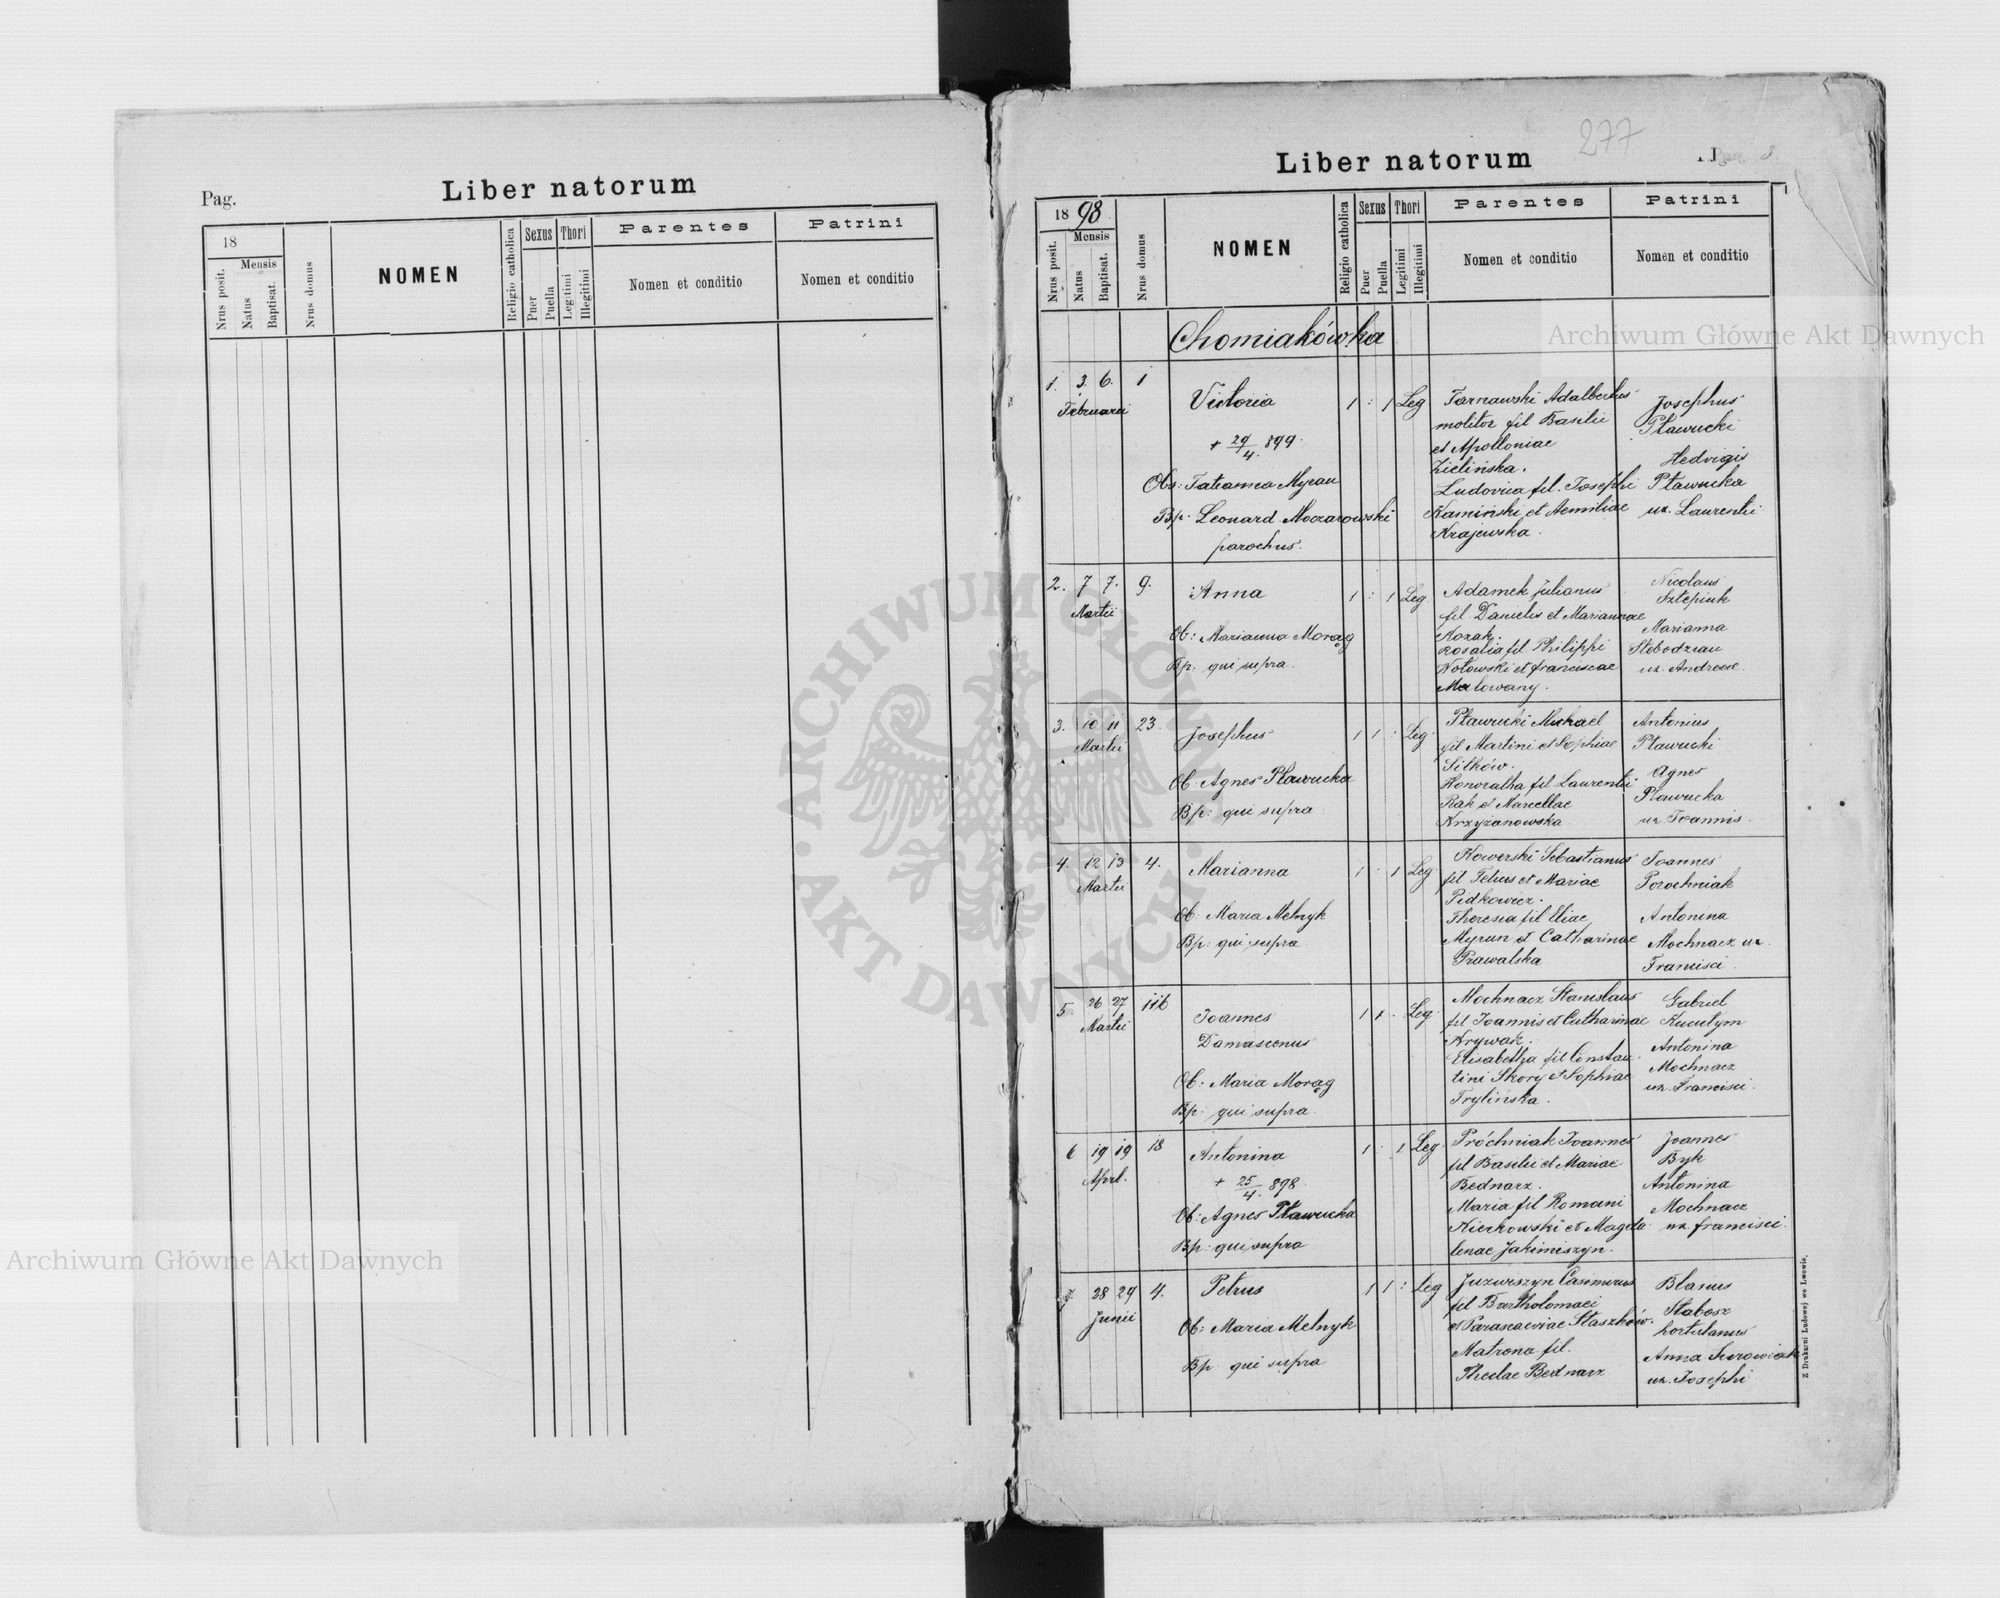 Pag.
Liber natorum
18
Mensis
Nrus posit.
Natus
Baptisat.
Nrus domus
NOMEN
Religio catholica
Sexus
Puer
Puella
Thori
Legitimi
Illegitimi
Parentes
Nomen et conditio
Patrini
Nomen et conditio
277
Liber natorum
1898
Mensis
Nrus posit.
Natus
Baptisat.
Nrus domus
NOMEN
Religio catholica
Sexus
Puer
Puella
Thori
Legitimi
Illegitimi
Parentes
Nomen et conditio
Patrini
Nomen et conditio
Chomiakówka
1. 3. 6. 1
Februarii
Victoria
+ 29/4. 899.
Obs: Tatianna Myran
Bp. Leonard Moczarowski
parochus.
1 : 1 Leg
Tarnawski Adalbertus
molitor fil Basilii
et Apolloniae
Zielińska.
Ludovica fil. Josephi
Kamiński et Aemiliae
Krajewska.
Josephus
Pławucki
Hedvigis
Pławucka
ux. Laurentii
2. 7 7. 9.
Martii
Anna
Ob: Marianna Morąg
Bp. qui supra.
1 : 1 Leg
Adamek Julianus
fil Danielis et Mariannae
Kozak.
Rosalia fil. Philippi
Wołowski et Franciscae
Malowany.
Nicolaus
Sztepiuk
Marianna
Słobodzian
ux. Andreae.
3. 10 11 23.
Martii
Josephus
Ob. Agnes Pławucka
Bp: qui supra
1 1 : Leg
Pławucki Michael
fil Martini et Sophiae
Silków.
Honoratha fil Laurentii
Rak et Marcellae
Krzyżanowska
Antonius
Pławucki
Agnes
Pławucka
ux Joannis.
4. 12 13 4.
Martii
Marianna
Ob. Maria Melnyk
Bp: qui supra
1 : 1 Leg
Kowerski Sebastianus
fil Felicis et Mariae
Pidkowicz.
Theresia fil Eliae
Myrun et Catharinae
Prawalska
Joannes
Porochniak
Antonina
Mochnacz ux.
Francisci
5. 26 27 116
Martii
Joannes
Damascenus
Ob. Maria Morąg
Bp: qui supra.
1 1 . Leg
Mochnacz Stanislaus
fil Joannis et Catharinae
Krywak.
Elisabetha fil Constan
tini Skory et Sophiae
Trylińska.
Gabriel
Kuculym
Antonina
Mochnacz
ux. Francisci.
6 19 19 18
April.
Antonina
+ 25/4. 898.
Ob. Agnes Pławucka
Bp: qui supra
1 : 1 Leg
Próchniak Joannes
fil Basilii et Mariae
Bednarz.
Maria fil Romani
Nierkowski et Magda
lenae Jakimiszyn.
Joannes
Byk
Antonina
Mochnacz
ux. Francisci.
7. 28 29 4.
Junii
Petrus
Ob: Maria Melnyk
Bp. qui supra
1 1 : Leg
Juzwiszyn Casimirus
fil Bartholomaei
et Parascaeviae Staszków.
Matrona fil.
Theclae Bednarz
Blasius
Słabosz
hortulanus
Anna Surowiak
ux. Josephi
Z Drukarni Ludowej we Lwowie.
Archiwum Główne Akt Dawnych
Archiwum Główne Akt Dawnych
ARCHIWUM GŁÓWNE AKT DAWNYCH